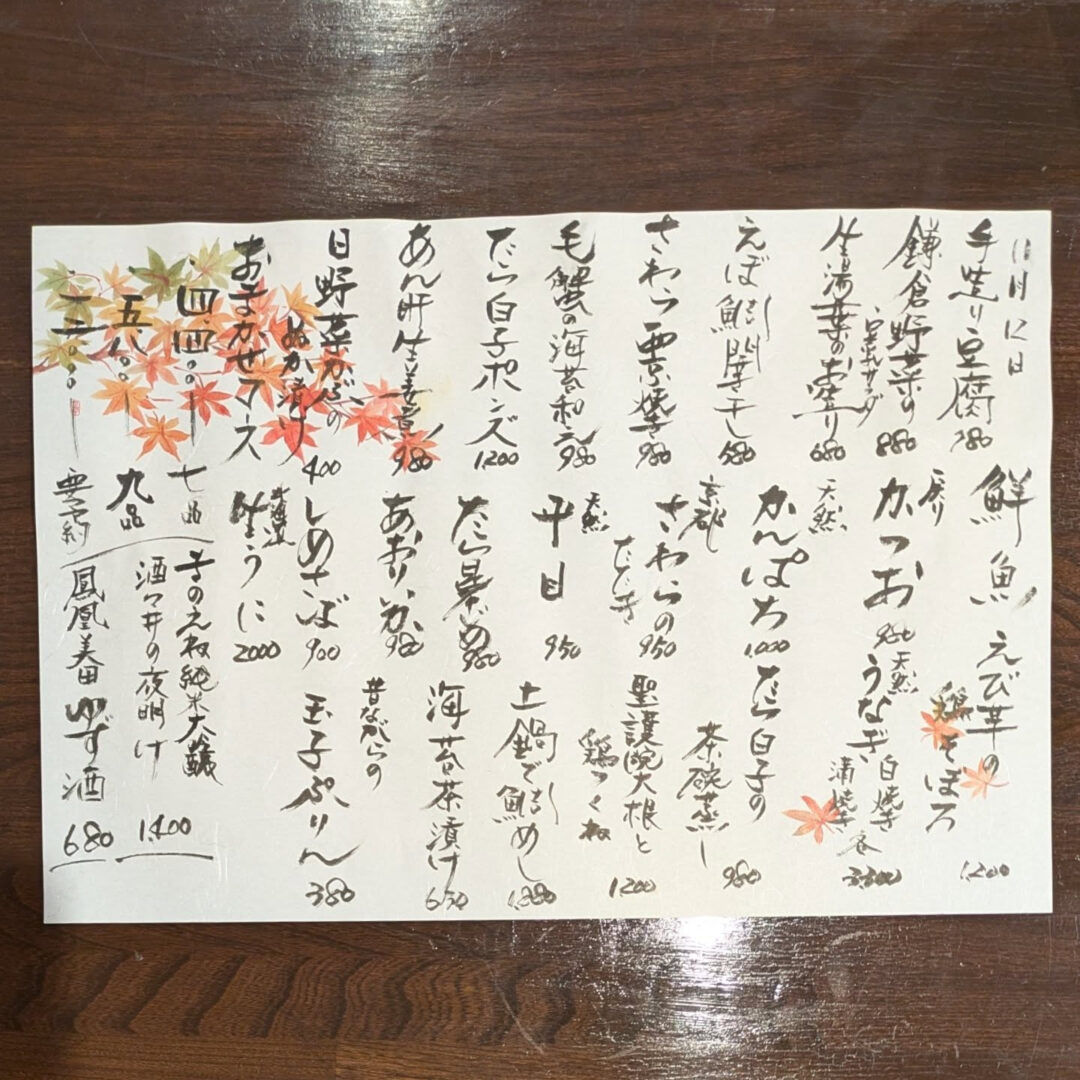 11月12日
手造り豆腐 780
鎌倉野菜の
豆乳サラダ 880
生湯葉のお造り 680
えぼ鯛開き干し 580
さわら西京焼き 980
毛蟹の海苔和え 980
たら白子ポンズ 1200
あん肝生姜煮 980
日野菜かぶの
ぬか漬け 400
おまかせコース
四、四〇〇 七品
五、八〇〇 九品
要予約
鮮魚
戻り
かつお 980
天然
かんぱち 1,000
京都
さわらの
たたき 950
天然
平目 950
たら昆〆 980
あおりいか 980
しめさば 900
北海道
生うに 2000
えび芋の
鶏そぼろ 1,200
天然
うなぎ 白焼き
蒲焼き 各 3,300
たら白子の
茶碗蒸し 980
聖護院大根と
鶏つくね 1200
土鍋で鯛めし
海苔茶漬け 650
昔ながらの
玉子ぷりん 380
純米大吟醸
酒々井の夜明け 1,400
鳳凰美田ゆず酒 680